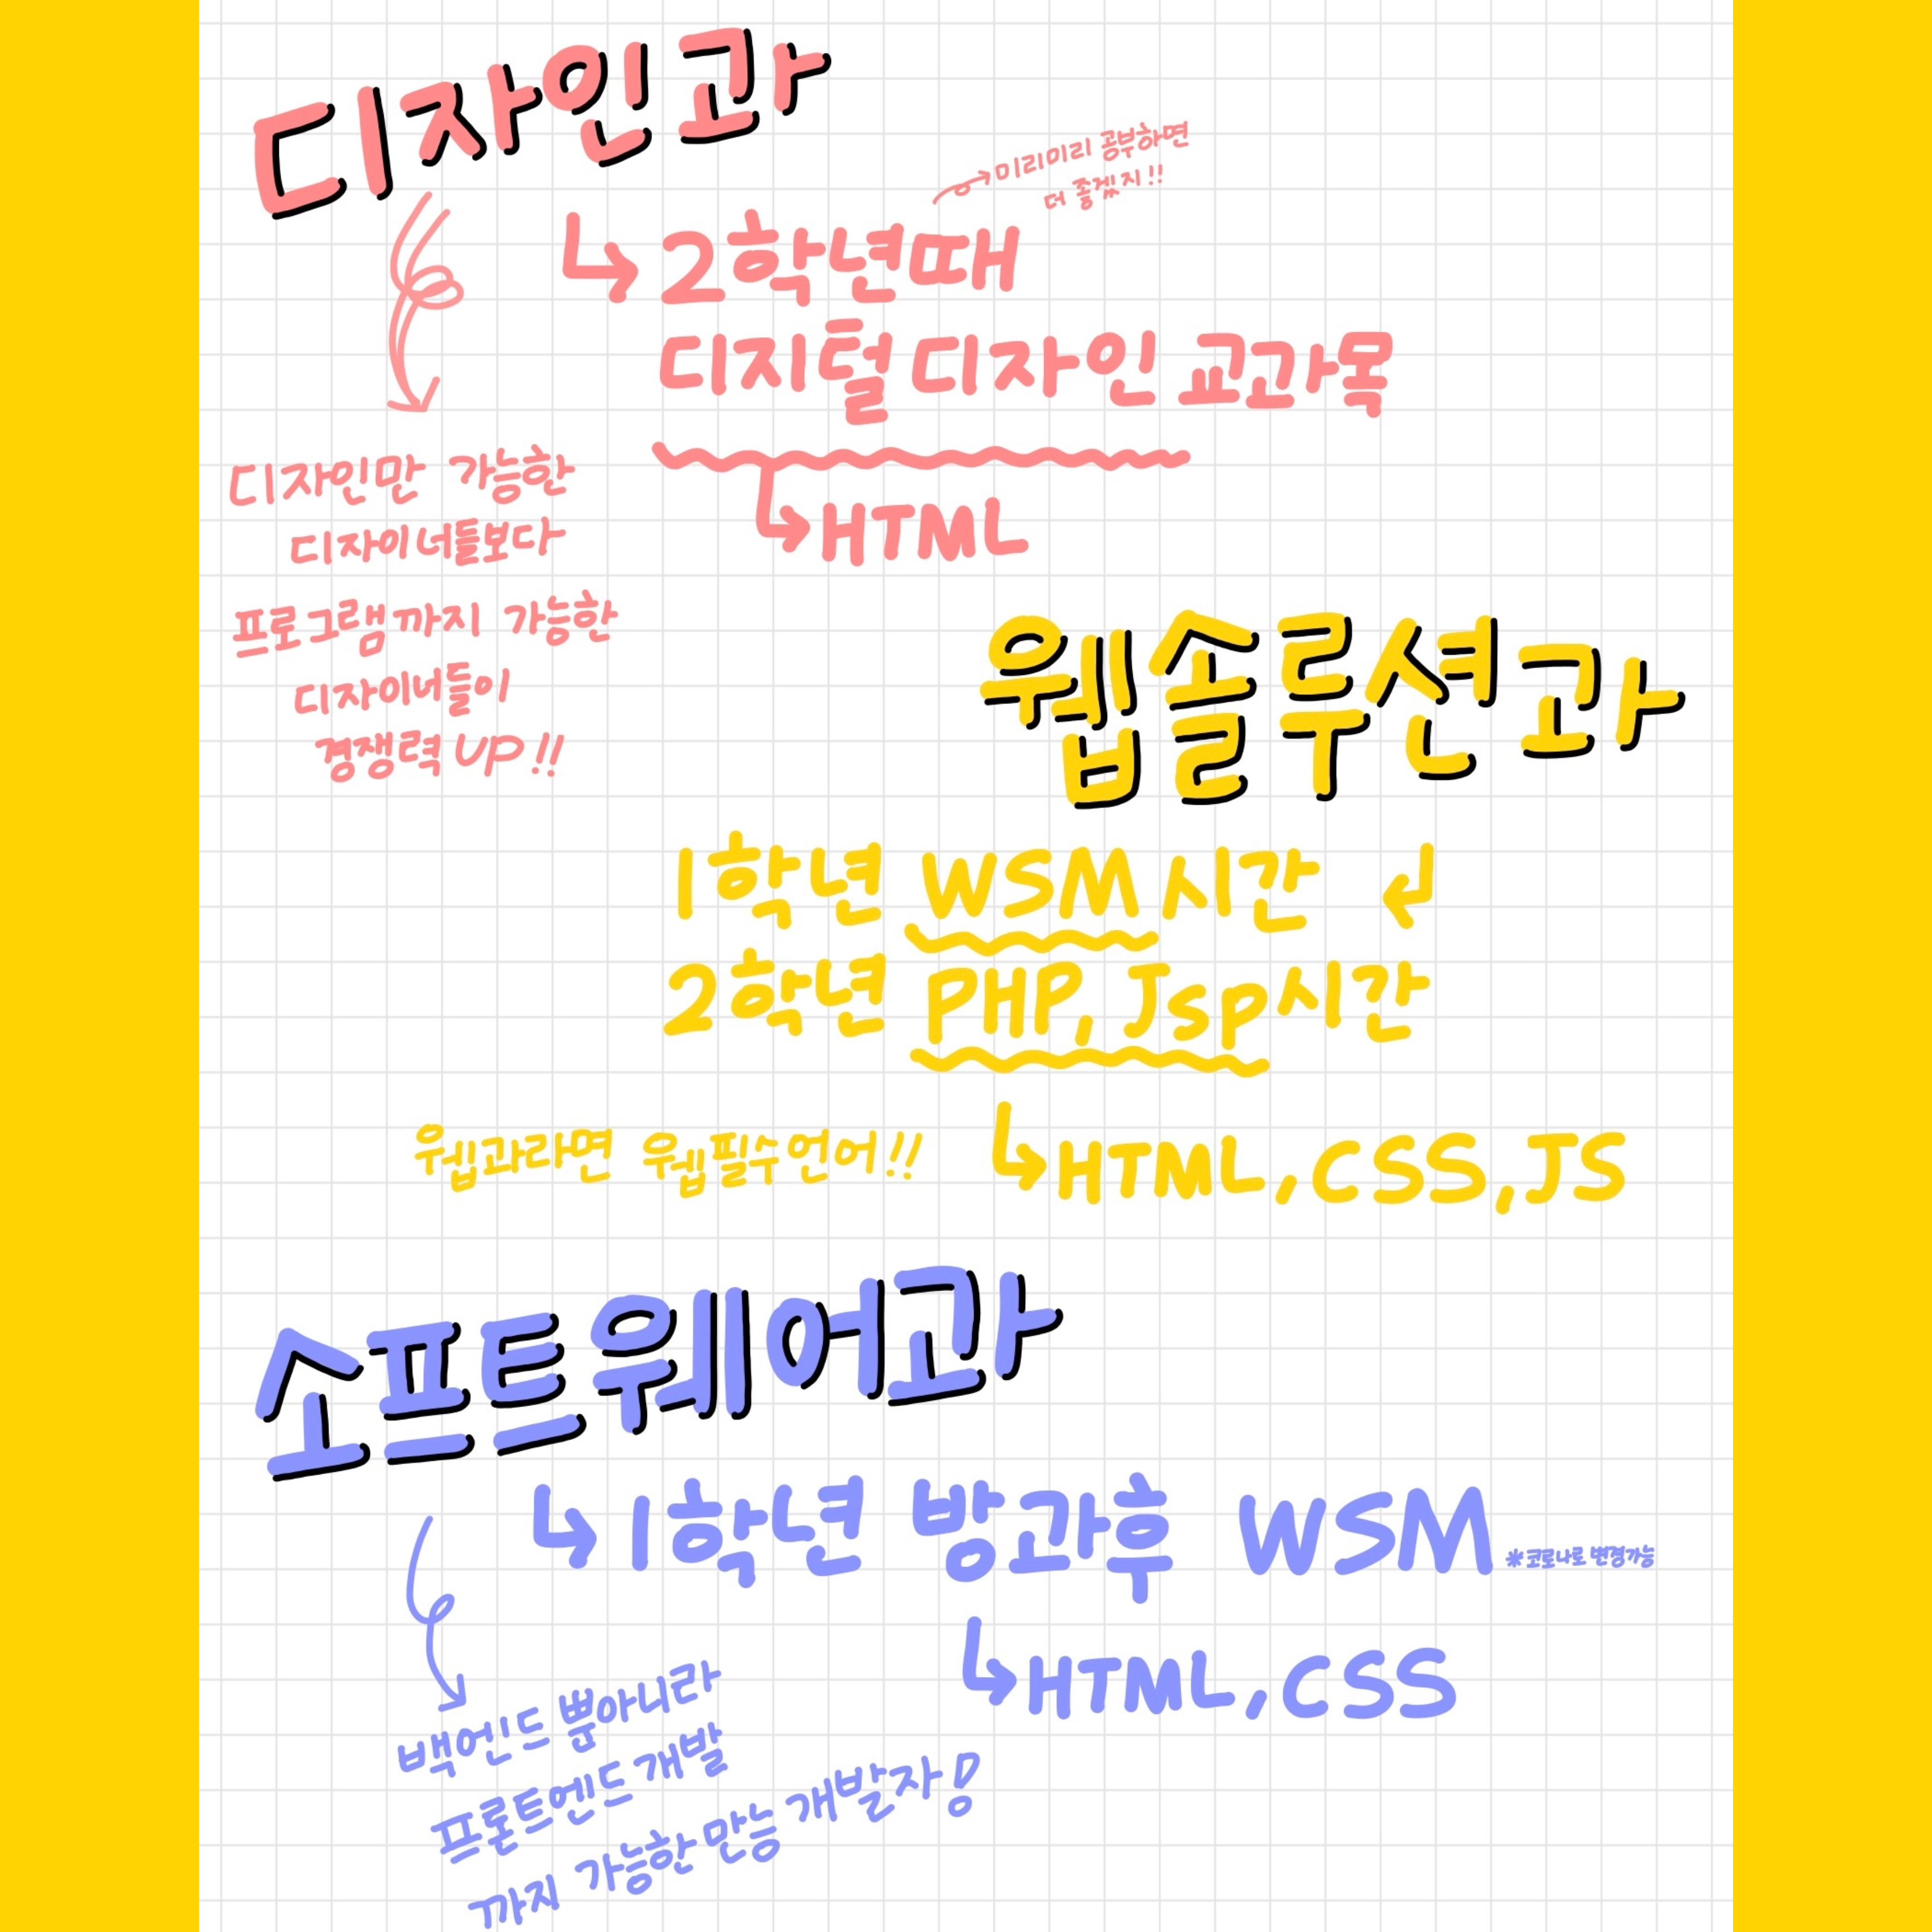 디자인과
미리미리 공부하면
더 좋겠지!!
2학년때
디지털 디자인 교과목
HTML
디자인만 가능한
디자이너들보다
프로그램까지 가능한
디자이너들이
경쟁력 UP!!
웹솔루션과
1학년 WSM시간
2학년 PHP, Jsp시간
웹과라면 웹필수언어!!
HTML, CSS, JS
소프트웨어과
1학년 방과후 WSM
*코로나로 변경가능
HTML, CSS
백엔드 뿐아니라
프론트엔드 개발
까지 가능한 만능 개발자!